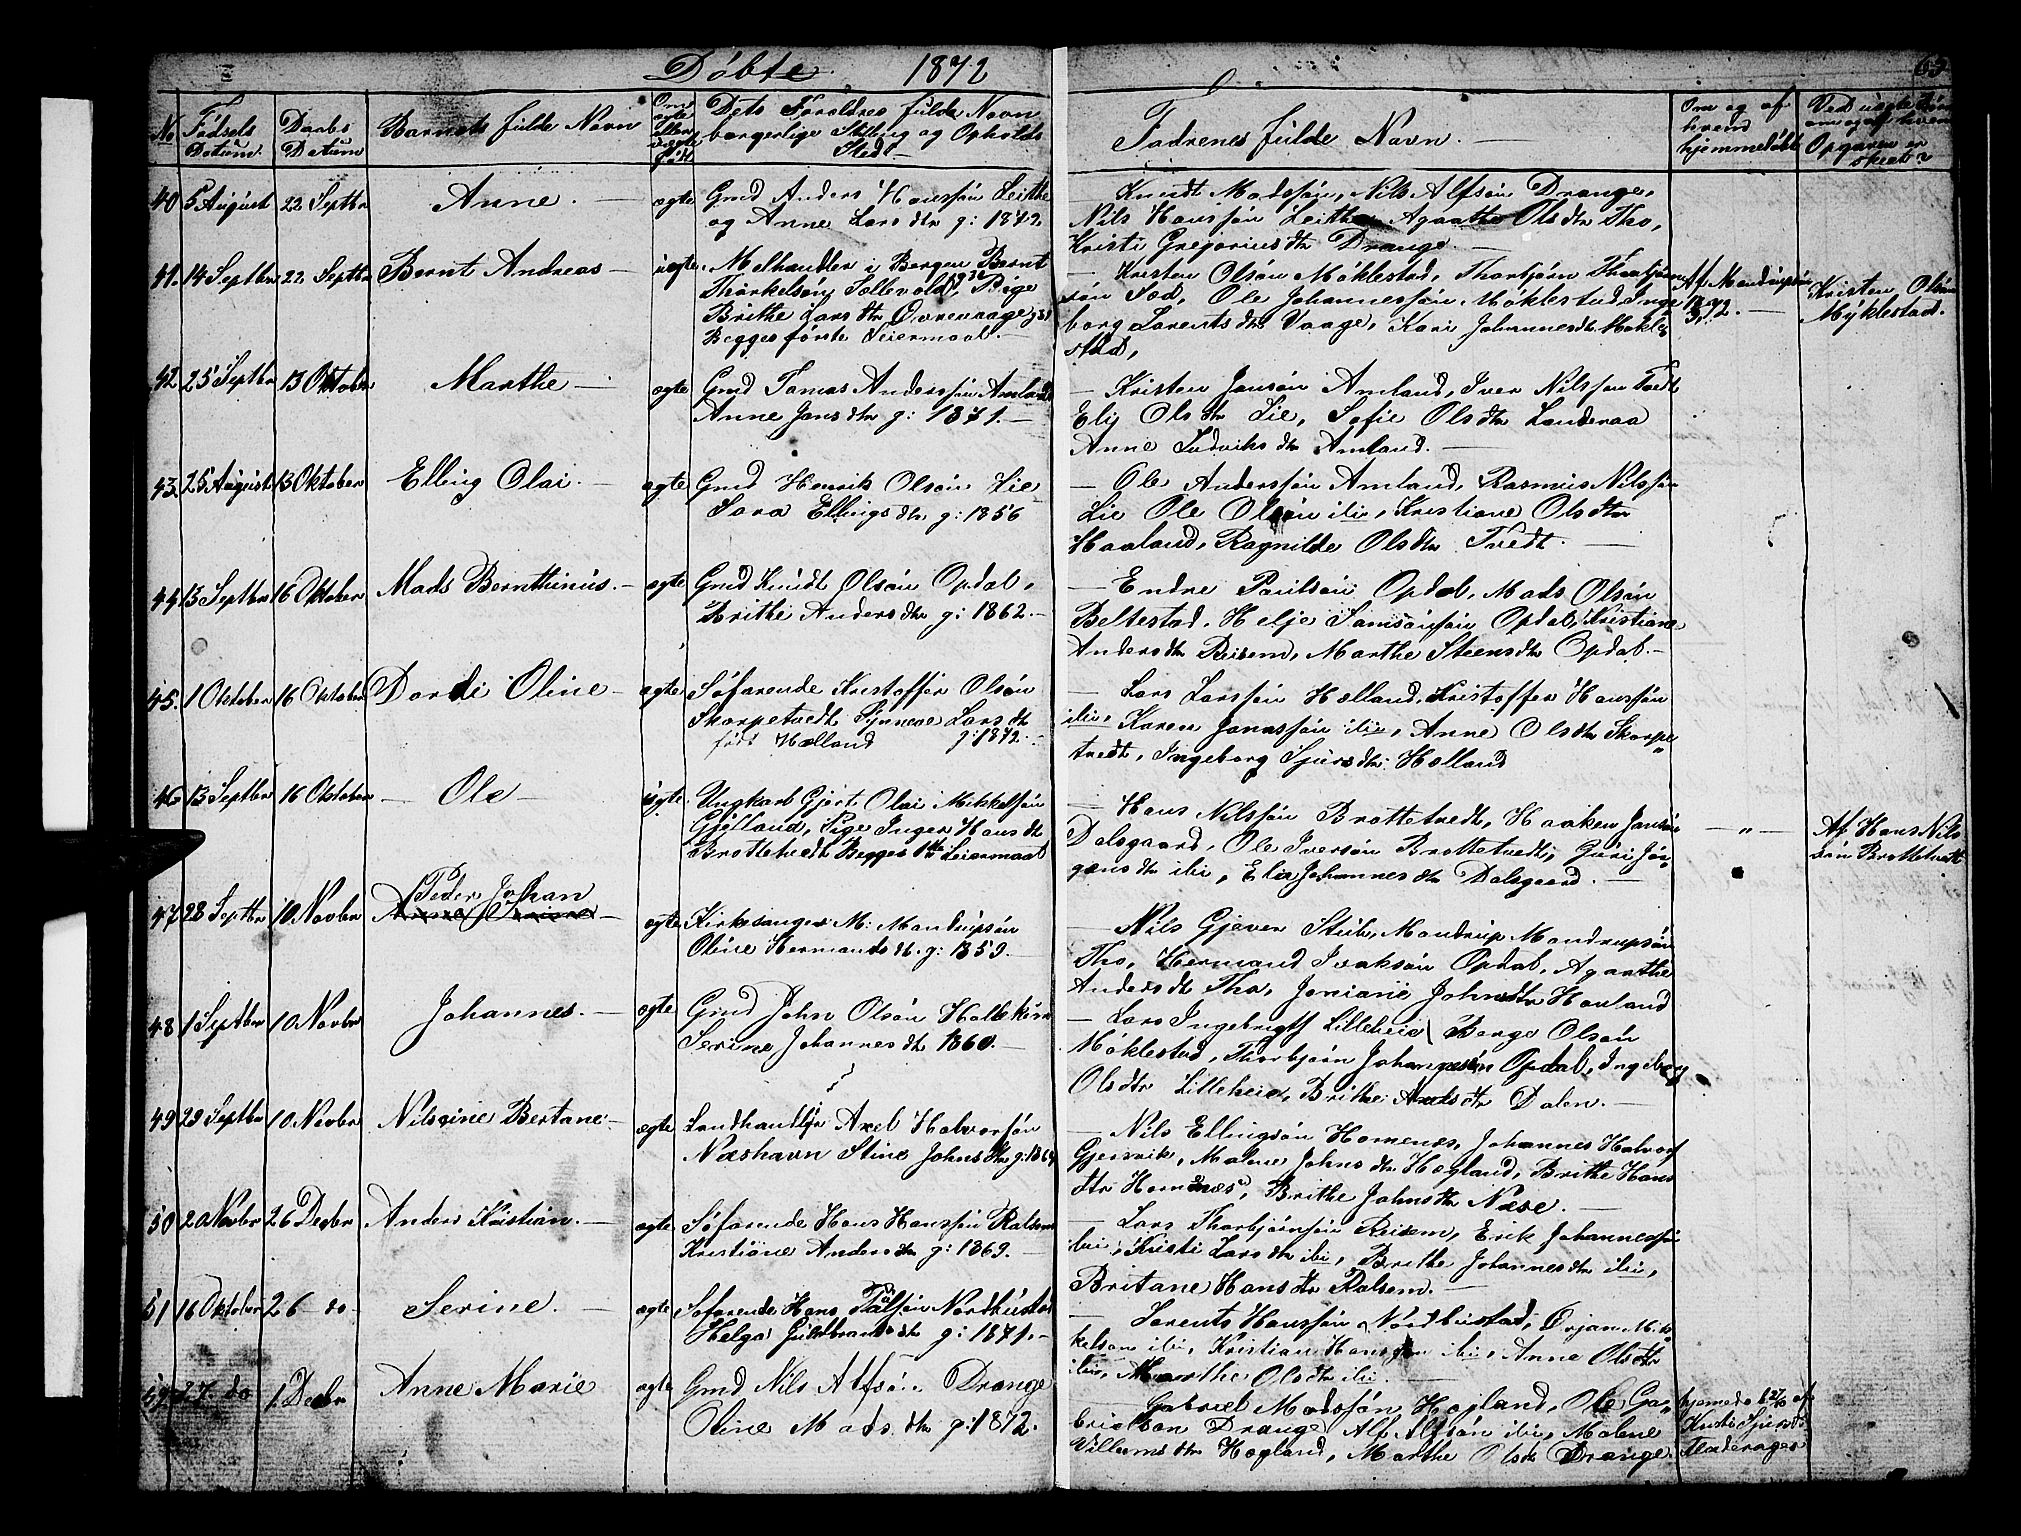 Døbte 1872
63
No
Fødsels Datum
Daabs Datum
Barnets fulde Navn
Om ægte eller uægte født
Dets Forældres fulde Navn borgerlige Stilling og Opholds Sted
Fadrenes fulde Navn.
Om og af hvem hjemmedøbt
Ved uægte om og af hvem Opgaven er skeet?
40 5 August 22 Septbr Anne. — ægte Gmd Anders Hanssøn Leithe
og Anne Lars dtr g: 1872.
Knudt Madssøn, Nils Alfsøn Drange,
Nils Hanssøn Leithe Agaathe Olsdtr Tho,
Kristi Gregorius dtr Drange. —
41. 14 Septbr 22 Septbr Bernt Andreas — uægte. Melhandler i Bergen Bernt
Thorkelsøn Sællevold, Pige
Brithe Lars dtr Øvrevaage
Begges første Leiermaal. —
— Kristen Olsøn Møklestad, Thorbjørn Thorbjørn
søn Tød, Ole Johannessøn Møklestad, Inge
borg Larents dtr Vaage, Kari Johannesdtr Møkle
stad,
Af Mandrupsøn
72. —
Kristen Olsøn
Myklestad.
42 25 Septbr 13 Oktobr Marthe — ægte Gmd Tomas Anderssøn Amland
Anne Jans dtr g: 1871. —
— Kristen Jansøn Amland, Iver Nilssøn Tvedt
Elij Ols dtr Lie, Sofie Olsdtr Landeraa
Anne Ludviks dtr Amland. —
43. 25 August 13 Oktober Elling Olai. — ægte Gmd Henrik Olsøn Lie
Sara Ellings dtr g: 1856
— Ole Anderssøn Amland, Rasmus Nilssøn
Lie Ole Olsøn ibi, Kristiane Olsdtr
Haaland, Ragnilde Olsdtr Tvedt. —
44 13 Septbr 16 Oktober Mads Bernthinus. — ægte Gmd Knudt Olsøn Opdal,
Brithe Anders dtr g: 1862. —
— Endre Poulsøn Opdal, Mads Olsøn
Beltestad, Helje Samsonsøn Opdal, Kristiane
Anders dtr Reisem, Marthe Steens dtr Opdal. —
45. 1 Oktober 16 Oktober Dordi Oline — ægte Søfarende Kristoffer Olsøn
Skarpetvedt Synneve Lars dtr
født Hælland g: 1872. —
— Lars Larssøn Hælland, Kristoffer Hanssøn
ibi, Karen Jonassøn ibi, Anne Olsdtr Skarpe
tvedt, Ingeborg Sjurs dtr Hælland
46 13 Septbr 16 Oktober — Ole — uægte. Ungkarl Gjert Olai Mikkelsøn
Gjelland, Pige Inger Hans dtr
Brottetvedt Begges 1ste Leiermaal
— Hans Nilssøn Brottetvedt, Haaken Jansøn
Dalsgaard, Ole Iversøn Brottetvedt, Guri Jør
gens dtr ibi, Elie Johannes dtr Dalsgaard. —
— " —
Af Hans Nils
søn Brottetvett
47 28 Septbr 10. Novbr Peder Johan
ægte Kirkesanger M: Mandrupsøn
Oline Hermands dtr. g: 1859. —
— Nils Gjever Stub, Mandrup Mandrupsøn
Tho, Hermand Isaksøn Opdal, Agaathe
Anders dtr Tho, Joniane Johns dtr Hauland
48 1 Septbr 10. Novbr Johannes. — ægte Gmd John Olsøn Hallekime
Serine Johannes dtr 1860. —
— Lars Ingebrigts Lilleheie, Børge Olsøn
Møklestad, Thorbjørn Johannessøn Opdal, Ingeborg
Olsdtr Lilleheie, Brithe dtr Dalen. —
49 29 Septbr 10. Novbr Nilsine Bertane. — ægte Landhandler Axel Halvorsøn
Næshavn Stine Johns dtr g: 1864
— Nils Ellingsøn Homenæs, Johannes Halvors
Gjersvik, Malene Johns dtr Hogland, Brithe Hans
dtr Homenæs, Brithe Johns dtr Næse. —
50 20 Novbr 26 Decbr Anders Kristian. — ægte Søfarende Hans Hanssøn Ralsem
Kristiane Anders dtr g: 1869. —
— Lars Thorbjørnsøn Reisem, Erik Johannessøn
ibi, Kristi Lars dtr ibi, Brithe Johannes dtr ibi,
Britane Hans dtr Ralsem. —
51 16 Oktober 26 do Serine. — ægte Søfarende Hans Palssøn Nordhustad
Helga Guldbrands dtr g: 1871. —
— Larents Hanssøn Nordhustad, Ørjan Mik
kelsøn ibi, Kristian Hanssøn ibi, Anne Olsdtr
ibi, Marthe Olsdtr ibi. —
52 27. do 1. Decbr Anne Marie ægte Gmd Nils Alfsøn Drange
Oline Mads dtr g: 1872.
Gabriel Madssøn Hogland, Ole Ga
brielsøn Drange, Alf Alfsøn ibi, Malene
Villums dtr Hogland, Marthe Olsdtr Drange.
hjemmed 27/10 af
Kristi Sjursdtr